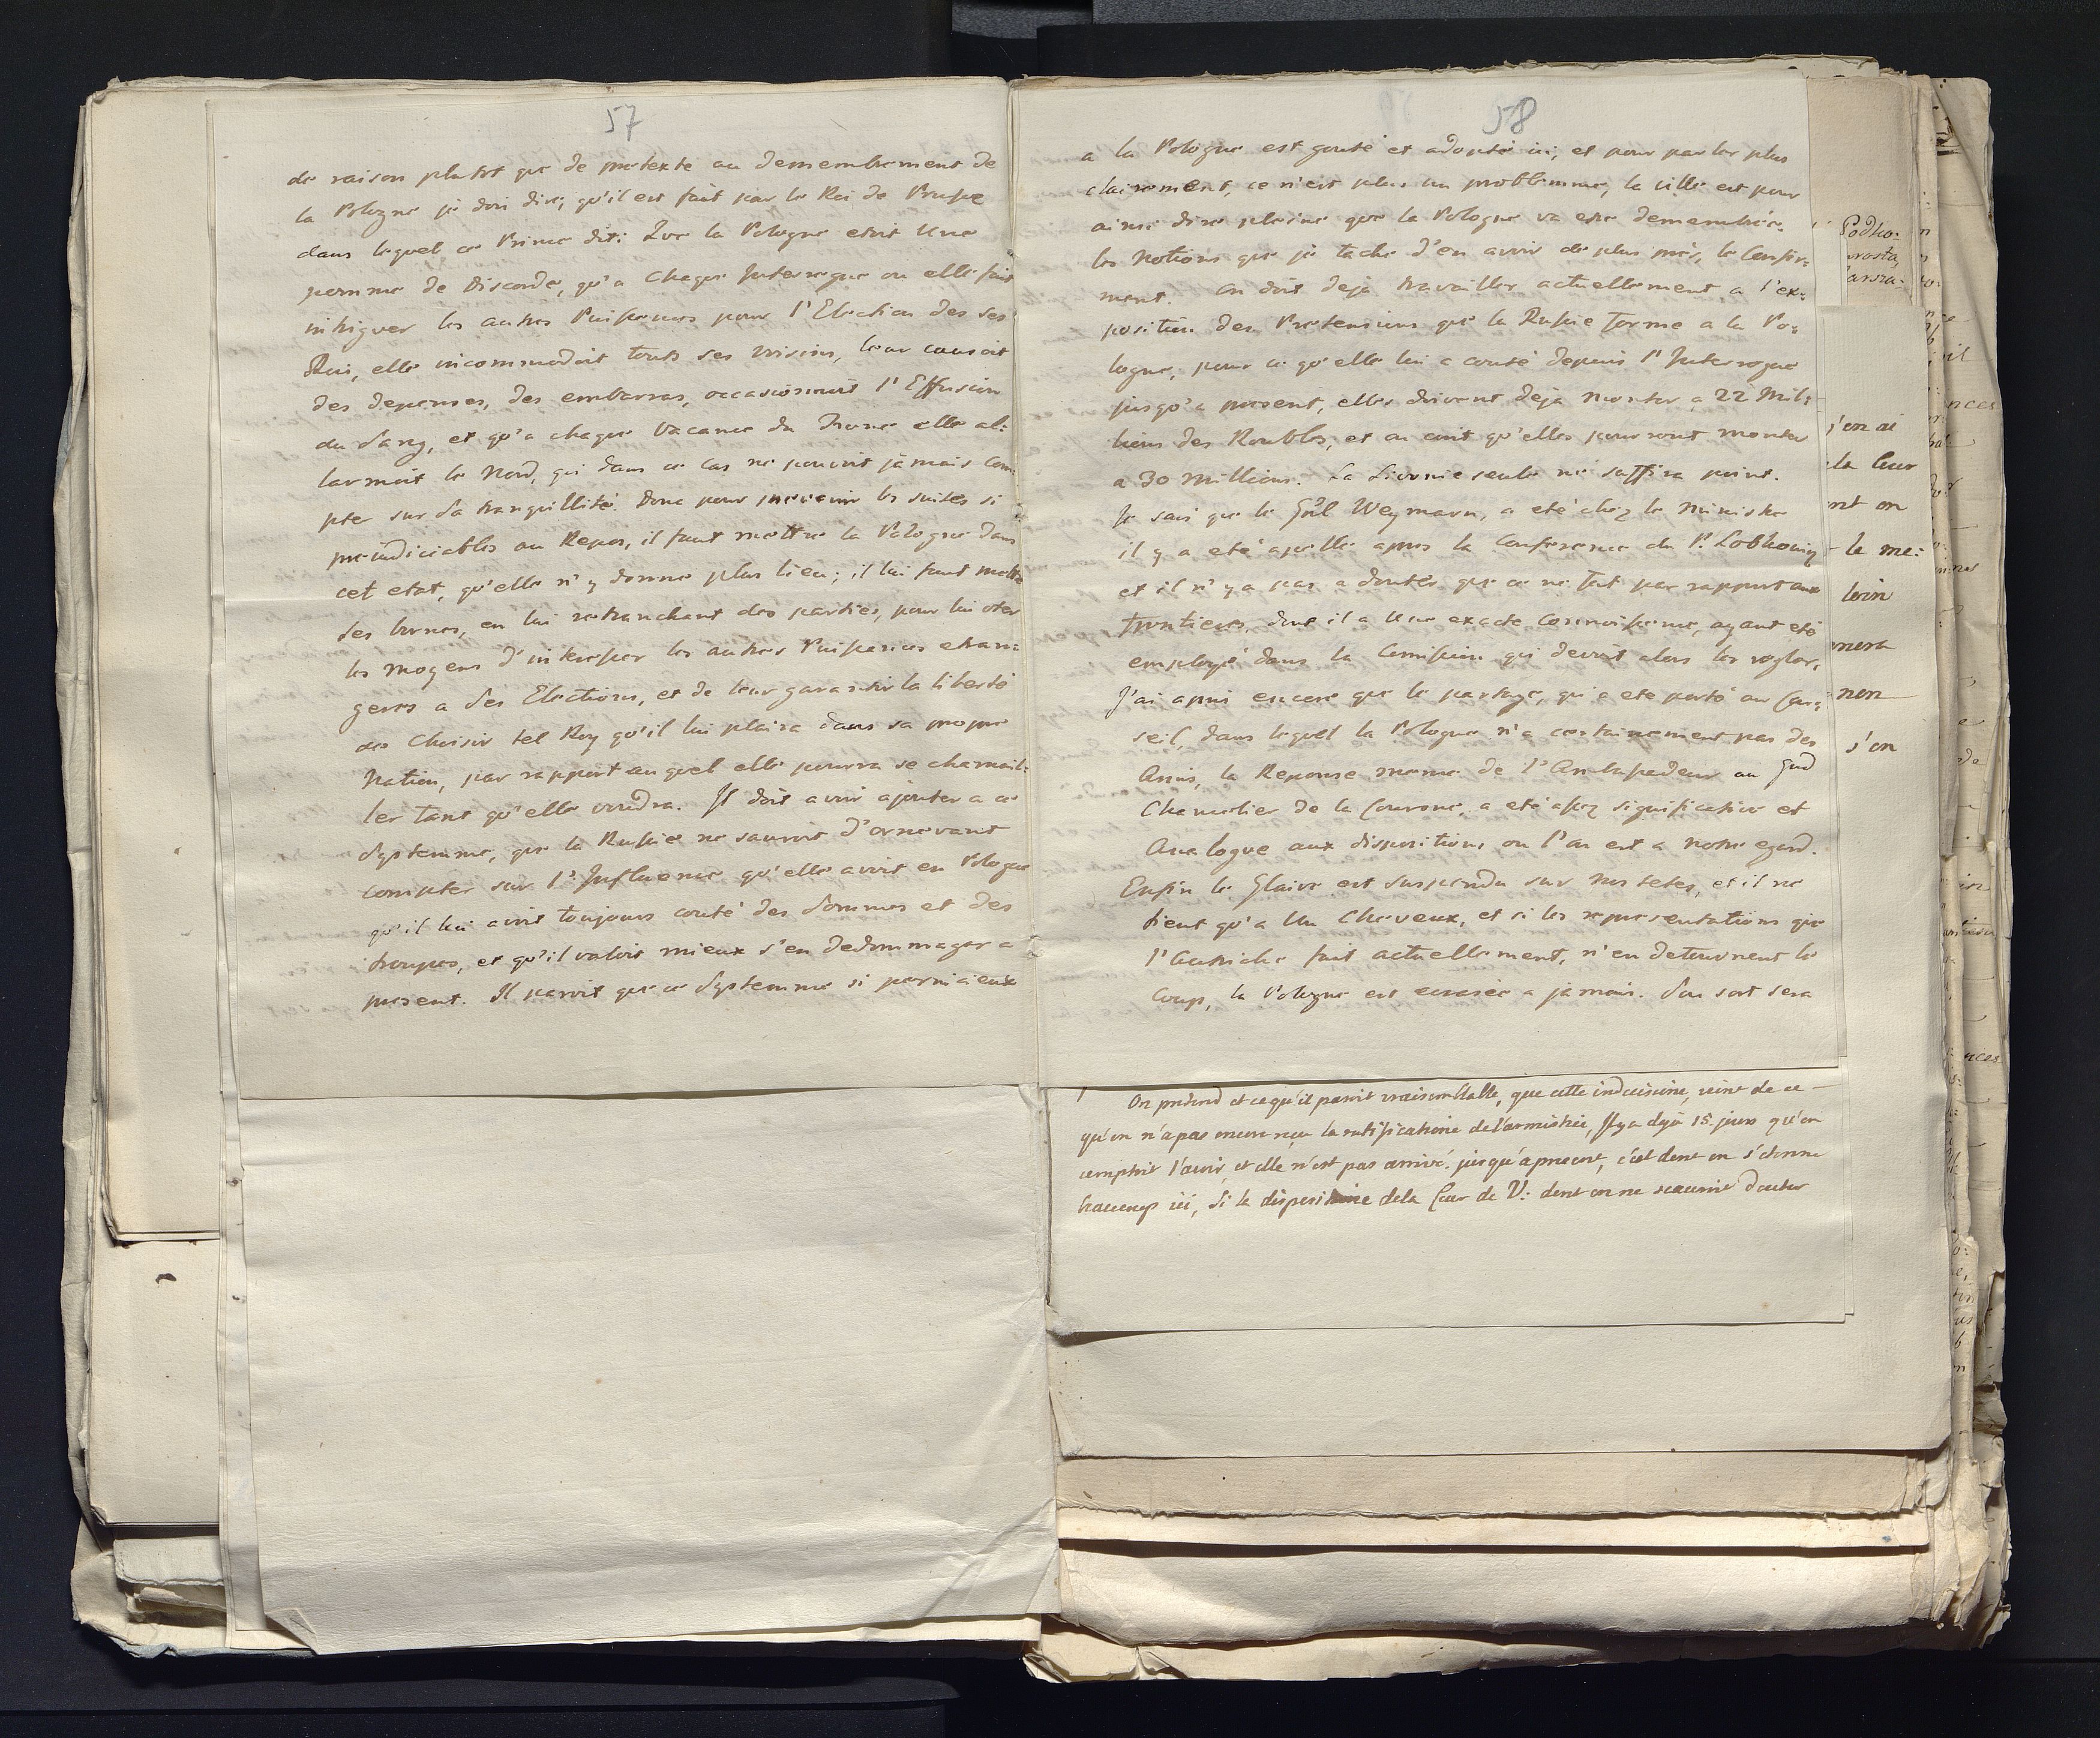 57
de raison plutot que de pretexte au demembrement de
la Pologne je dois dire, qu'il est fait par le Roi de Prusse
dans lequel ce Prince dit: Que la Pologne etoit Une
pomme de Discorde, qu'a chaque Interregne ou elle fait
intriguer les autres Puissances pour l'Election des ses
Rois, elle incommodoit touts ses voisins, leur causoit
des depenses, des embarras, occasionnoit l'Effusion
du Sang, et qu'a chaque Vacance du Trone elle al:
larmoit le Nord, qui dans ce cas ne pouvoit jamais Com:
pter sur Sa tranquillité. Donc pour prevenir les suites si
prejudiciables au Repos, il faut mettre la Pologne dans
cet etat, qu'elle n'y donne plus lieu; il lui faut mettre
des bornes, en lui retranchant des parties, pour lui oter
les moyens d'interesser les autres Puissances etran:
geres a Ses Elections, et de leur garantir la liberté
de Choisir tel Roy qu'il lui plaira dans sa propre
Nation, par rapport au quel elle pourra se chamail:
ler tant qu'elle voudra. Il doit avoir ajouter a ce
Systemme, que la Russie ne sauroit d'ornevant
Compter sur l'Influence qu'elle avoit en Pologne
qu'il lui avoit toujours couté des Sommes et des
troupes, et qu'il valoit mieux s'en dedommager a
present. Il paroit que ce Systemme si pernicieux
58
a la Pologne est gouté et adopté ici, et pour parler plus
clairement, ce n'est plus un problemme, la ville est pour
ainsi dire pleine que la Pologne va etre demembrée.
les Notions que je tache d'en avoir de plus près, le Confir:
ment. On doit deja travailler actuellement a l'ex:
position des Pretensions que la Russie forme a la Po:
logne, pour ce qu'elle lui a couté depuis l'Interregne
jusqu'a present, elles doivent deja monter a 22 Mil:
lions des Roubles, et on croit qu'elles pourront monter
a 30 Millions. La Livonie seule ne suffira point.
Je sais que le Gñl Weymarn, a eté chez le Ministre
il y a eté apellé apres la Conference du P. Lobkowitz
et il n'y a pas a douter que ce ne fut par rapport aux
frontieres, dont il a Une exacte Connoissance, ayant eté
employé dans la Comission qui devoit alors les regler,
J'ai apris encore que le partage, qui a eté porté au Con:
seil, dans lequel la Pologne n'a certainement pas des
Amis, la Reponse meme de l'Ambassadeur au Grd
Chancelier de la Couronne, a eté assez significative et
Analogue aux dispositions ou l'on est a notre egard.
Enfin le Glaive est Suspendu sur nos tetes, et il ne
tient qu'a Un Cheveux, et si les representations que
l'Autriche fait actuellement, n'en detournent le
Coup, la Pologne est ecrasée a jamais. Son sort sera
On pretend et ce qu'il paroit vraisemblable, que cette indecisione, vient de ce
qu'on n'a pas encore reçu la ratificatione de l'armistice, Il y a déjà 15. jours qu'on
comptoit l'avoir, et elle n'est pas arrivé jusqu'apresent, c'est dont on s'etonne
beaucoup ici, Si la dispositione dela Cour de V: dont on ne scauroit douter
Podho:
j'en ai
la leur
nt on
le me:
loin
non
s'on